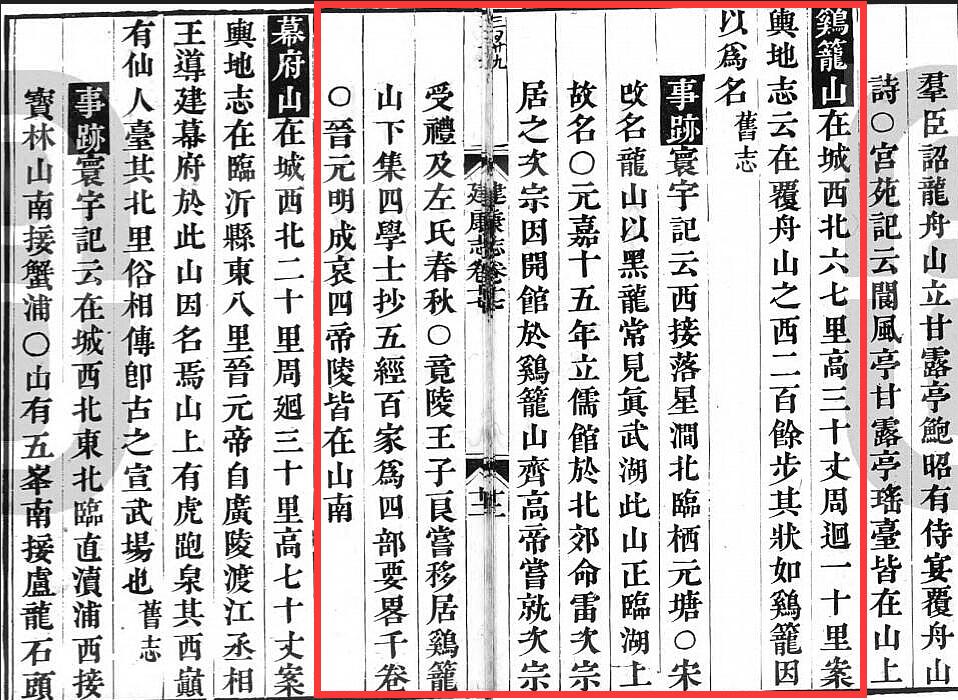 羣臣詔龍舟山立甘露亭鮑昭有侍宴覆舟山
詩〇宮苑記云閬風亭甘露亭瑤臺皆在山上
鷄籠山在城西北六七里高三十丈周迴一十里案
輿地志云在覆舟山之西二百餘步其狀如鷄籠因
以爲名舊志
事跡寰宇記云西接落星澗北臨栖元塘〇宋
改名龍山以黑龍常見眞武湖此山正臨湖上
故名〇元嘉十五年立儒館於北郊命雷次宗
居之次宗因開館於鷄籠山齊高帝嘗就次宗
建康志卷十七
廿二
受禮及左氏春秋〇竟陵王子良嘗移居鷄籠
山下集四學士抄五經百家爲四部要畧千卷
〇晉元明成哀四帝陵皆在山南
幕府山在城西北二十里周迴三十里高七十丈案
輿地志在臨沂縣東八里晉元帝自廣陵渡江丞相
王導建幕府於此山因名焉山上有虎跑泉其西巔
有仙人臺其北里俗相傳卽古之宣武場也舊志
事跡寰宇記云在城西北東北臨直瀆浦西接
寶林山南接蟹浦〇山有五峯南接盧龍石頭